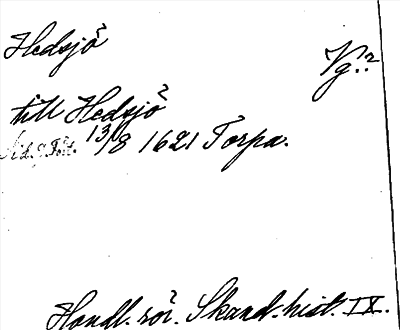 Hedsjö
Vg.
till Hedsjö
13/8 1621 Torpa.
Handl. rör. Skand. hist. IX.